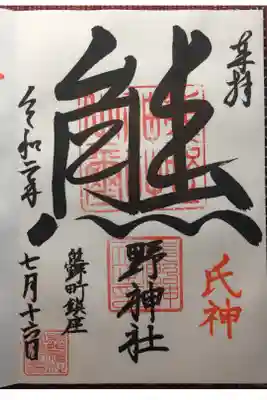 奉拝
氏神
熊
野神社
鎮座
令和二年
七月十六日